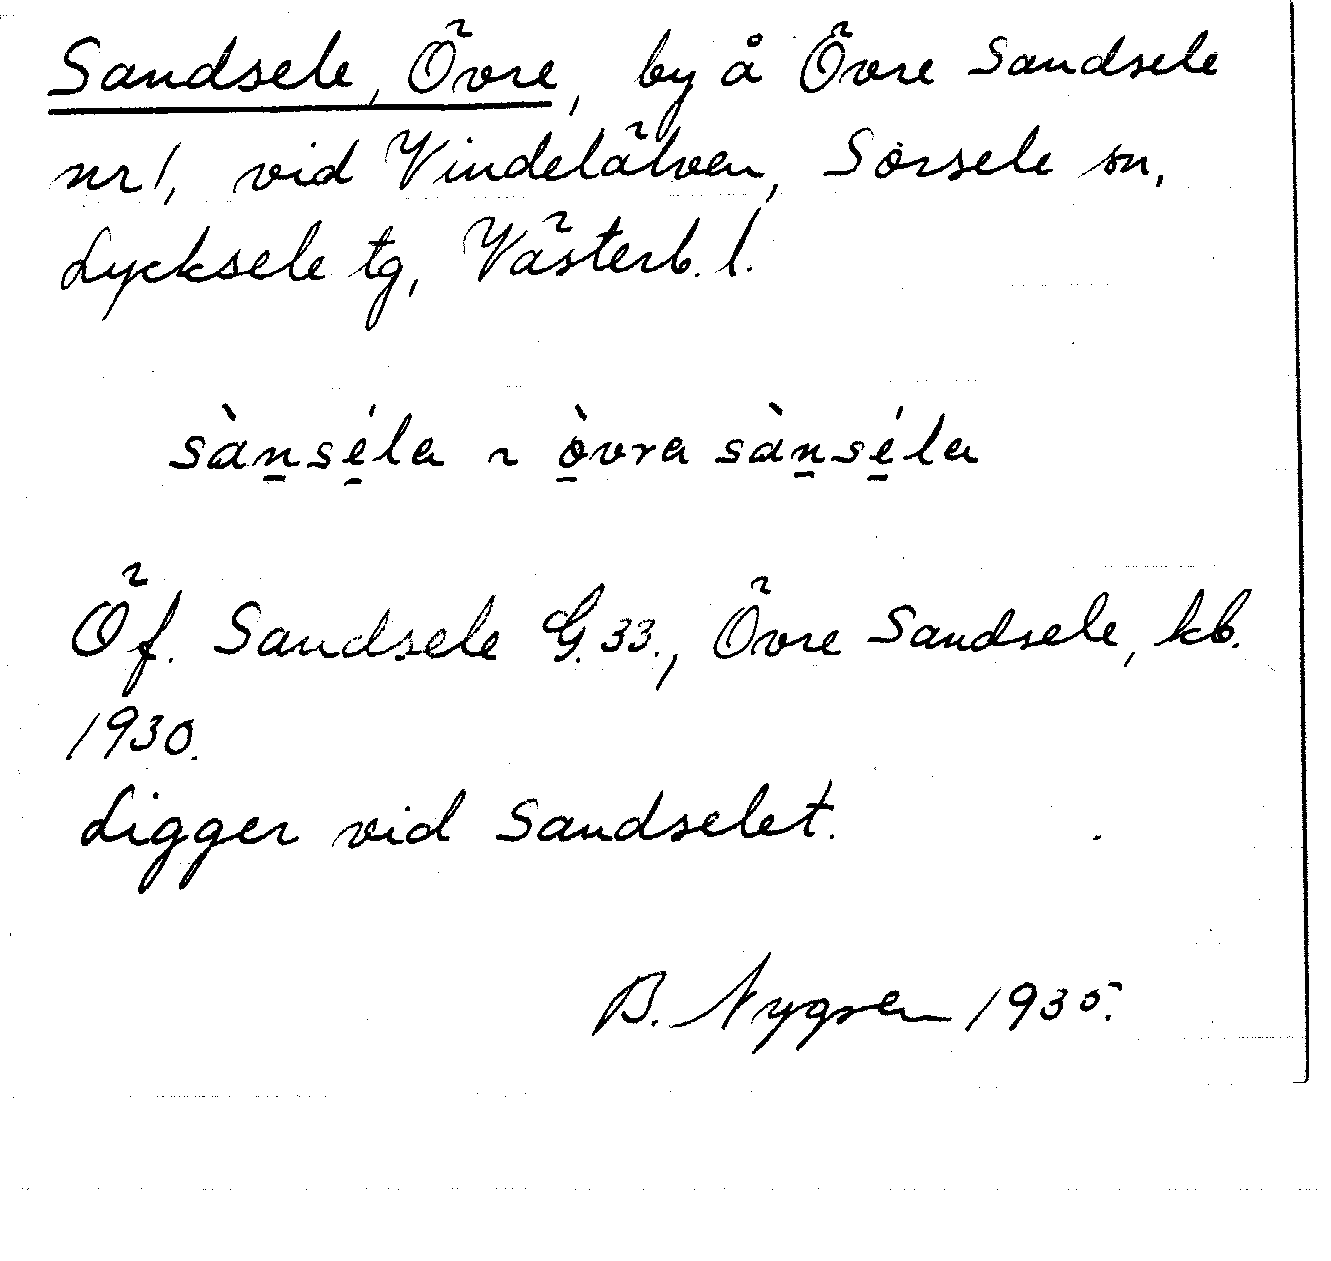 Sandsele, Övre, by å Övre Sandsele
nr 1, vid Vindelälven, Sorsele sn,
Lycksele tg, Västerb. l.
sàn̠sé̠la ~ ò̠vra sàn̠sé̠la
Öf. Sandsele G. 33., Övre Sandsele, kb.
1930.
Ligger vid Sandselet.
B. Nygren 1935.